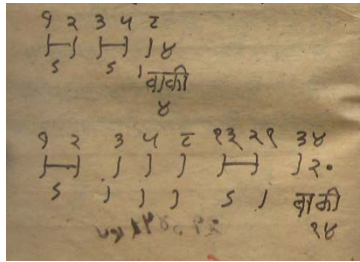 १ २ ३ ५ ८
। । । । । ४
ऽ ऽ । बाकी
४
१ २ ३ ५ ८ १३ २१ ३४
। । । । । । । । २०
ऽ । । । ऽ । बाकी
१४